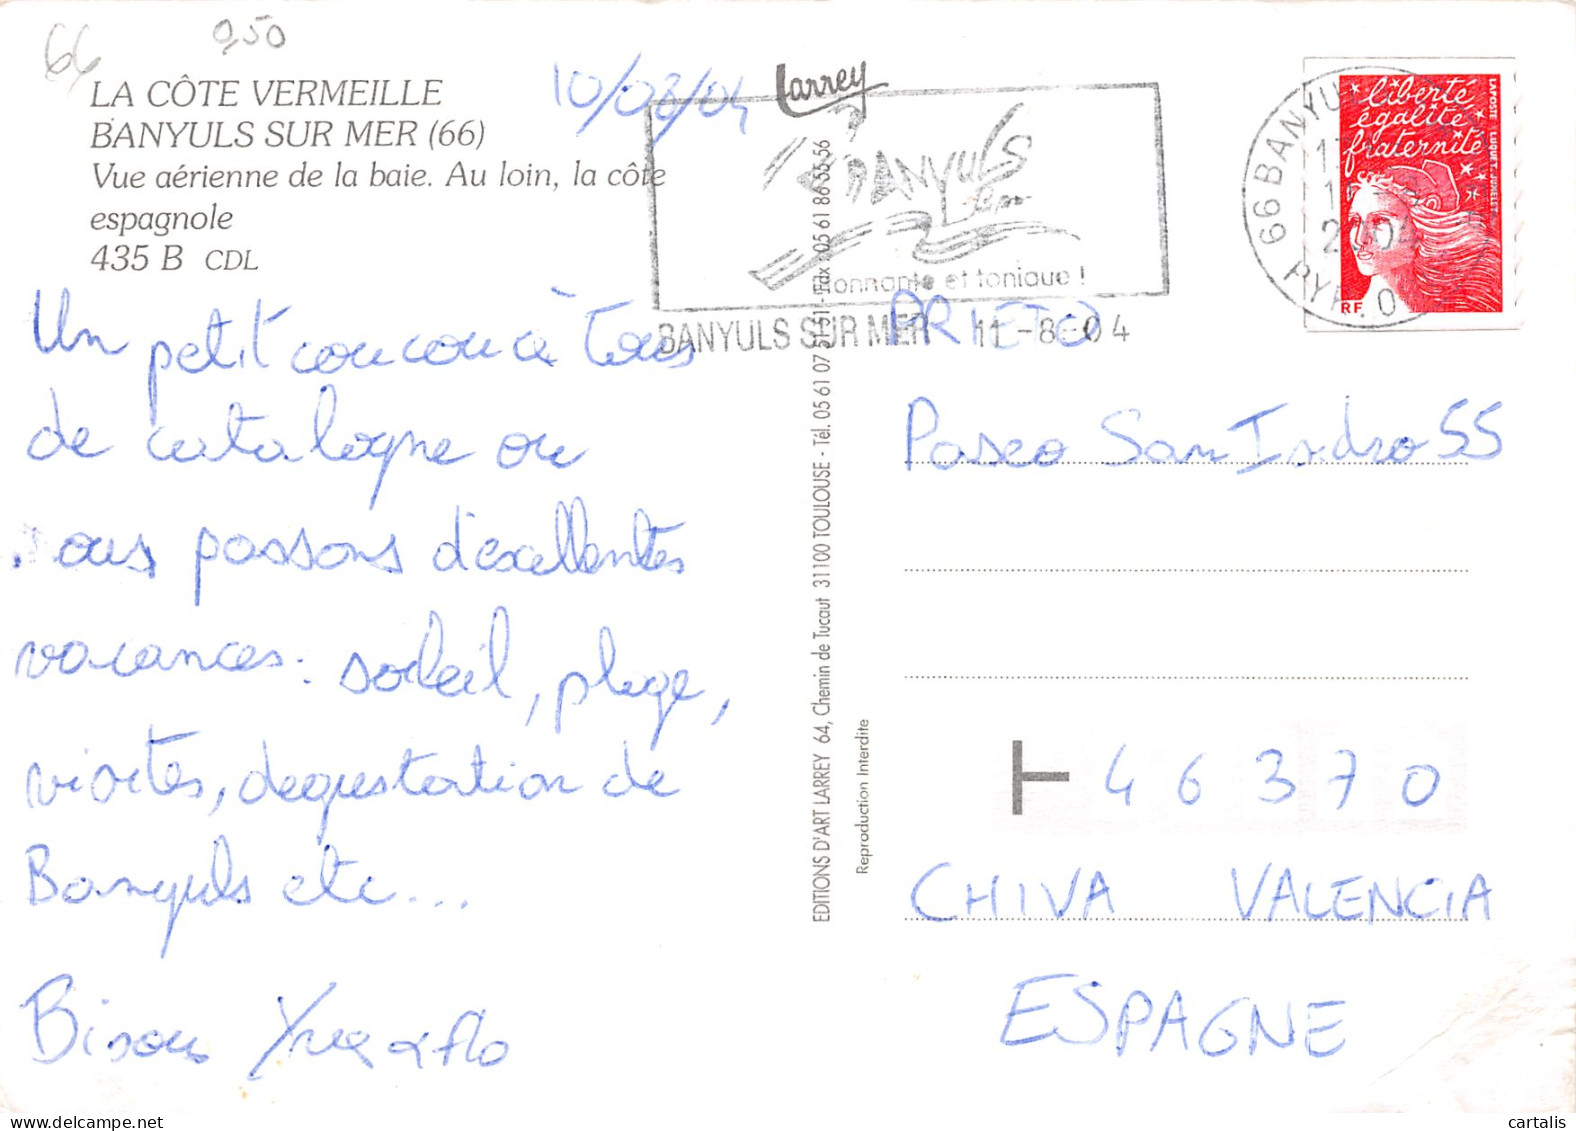 66
0,50
LA CÔTE VERMEILLE
BANYULS SUR MER (66)
Vue aérienne de la baie. Au loin, la côte
espagnole
435 B CDL
10/08/04
Larrey
BANYULS
et tonique !
BANYULS SUR MER 11-8-04
66 BANYULS
liberté
égalité
fraternité
LA POSTE LUQUET JUMELET
RF
Un petit coucou à tous
de catalogne ou
nous passons d'excellentes
vacances : soleil, plage,
visites, degustation de
Banyuls etc...
Bisou
EDITIONS D'ART LARREY 64, Chemin de Tucaut 31100 TOULOUSE - Tél. 05 61 07 51 51 - Fax 05 61 86 55 56
Reproduction Interdite
PRIETO
Paseo San Isidro 55
46370
CHIVA VALENCIA
ESPAGNE
cartalis